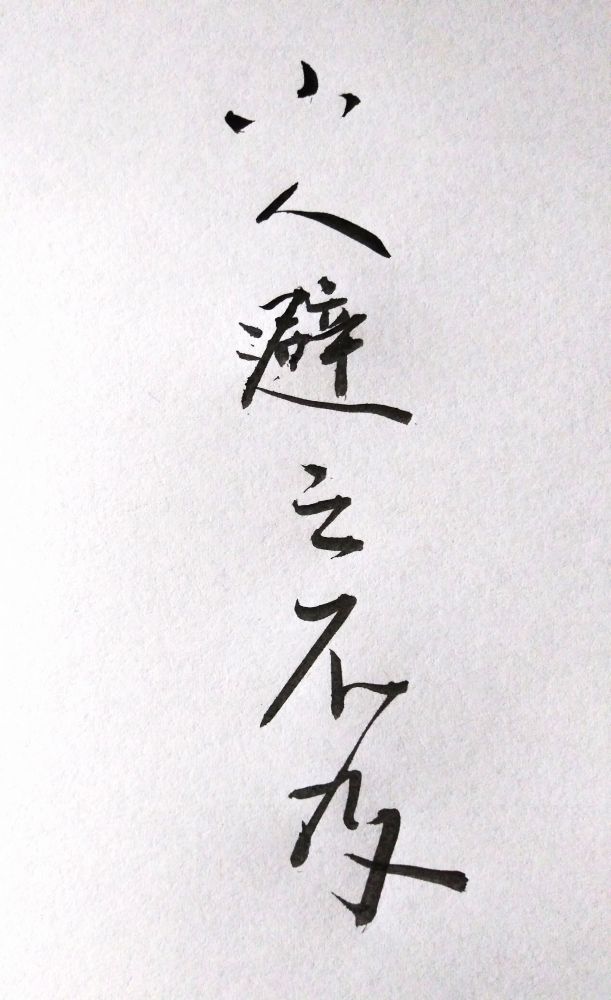 小人避之不及